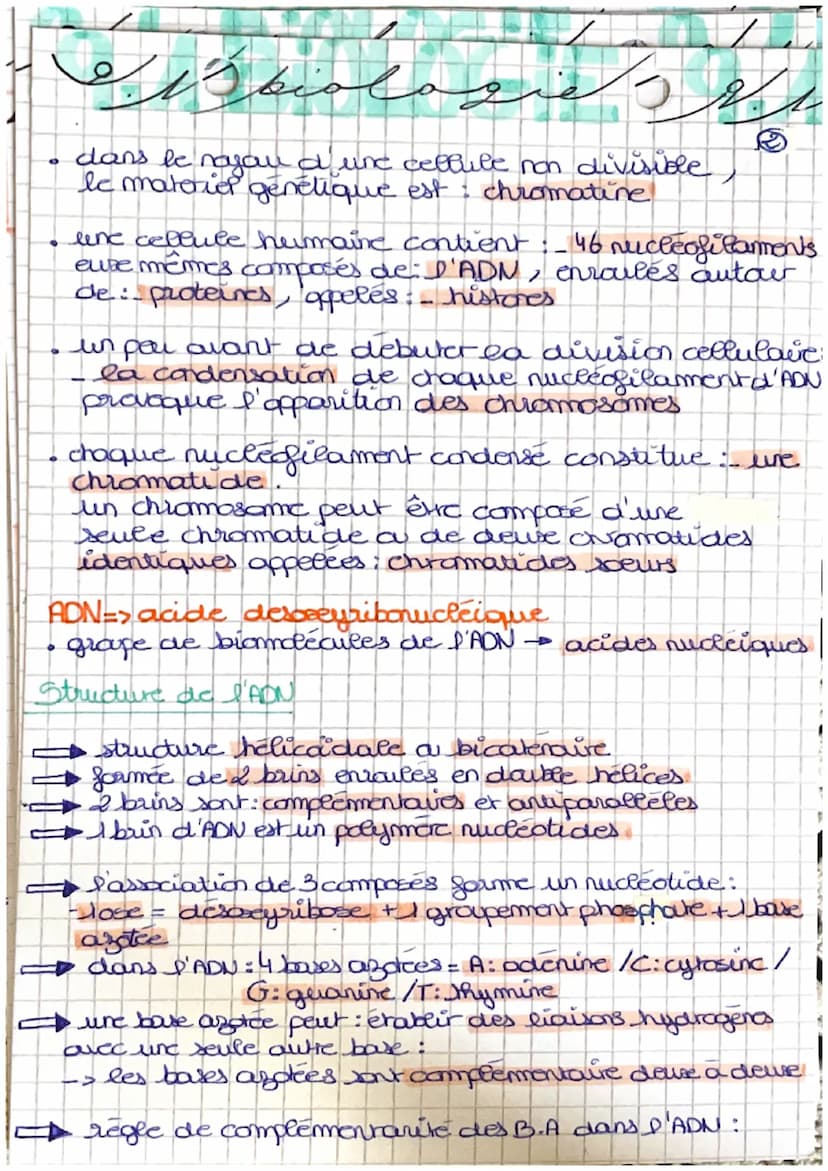 9.1 biologie 9.1
②
• dans le noyau d'une cellule non divisible,
le materiel génétique est : chromatine
• une cellule humaine contient : - 46 nucléofilaments
eux mêmes composés de : l'ADN, enroulés autour
de : - proteines, appelés : - histones
• un peu avant de débuter la division cellulaire :
- la condensation de chaque nucléofilament d'ADN
provoque l'apparition des chromosomes
• chaque nucléofilament condensé constitue : - une
chromatide.
un chromosome peut être composé d'une
seule chromatide ou de deux chromatides
identiques appelées : chromatides soeurs
ADN => acide desoxyribonucléique
• groupe de biomolécules de l'ADN → acides nucléiques
Structure de l'ADN
⇒ structure hélicoïdale ou bicaténaire
⇒ formée de 2 brins enroulés en double hélices
⇒ 2 brins sont : complémentaires et antiparallèles
⇒ 1 brin d'ADN est un polymère nucléotides.
⇒ l'association de 3 composés forme un nucléotide :
- 1 ose = désoxyribose + 1 groupement phosphate + 1 base
azotée
⇒ dans l'ADN : 4 bases azotées = A : adénine / C : cytosine /
G : guanine / T : thymine
⇒ une base azotée peut : établir des liaisons hydrogènes
avec une seule autre base :
-> les bases azotées sont complémentaire deux à deux
⇒ règle de complémentarité des B.A dans l'ADN :